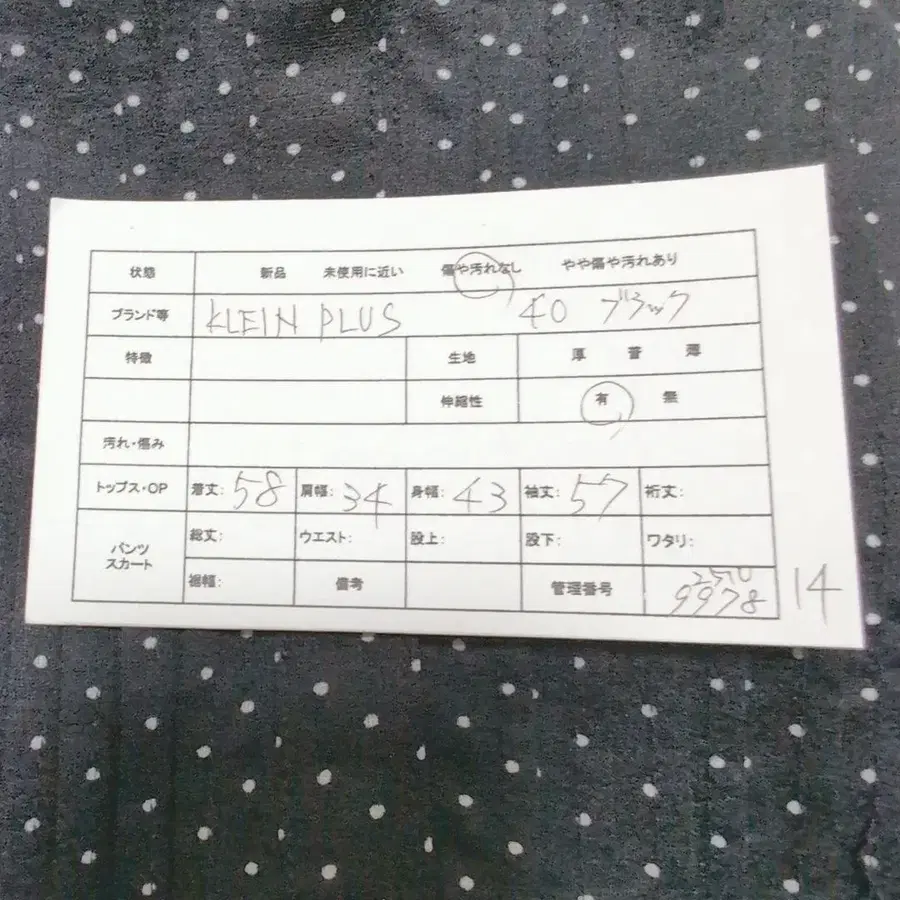 状態 新品 未使用に近い 傷や汚れなし やや傷や汚れあり
ブランド等 KLEIN PLUS 40 ブラック
特徴 生地 厚 普 薄
伸縮性 有 無
汚れ・傷み
トップス・OP 着丈: 58 肩幅: 34 身幅: 43 袖丈: 57 裄丈:
パンツ スカート 総丈: ウエスト: 股上: 股下: ワタリ:
裾幅: 備考 管理番号 2510 9978 14